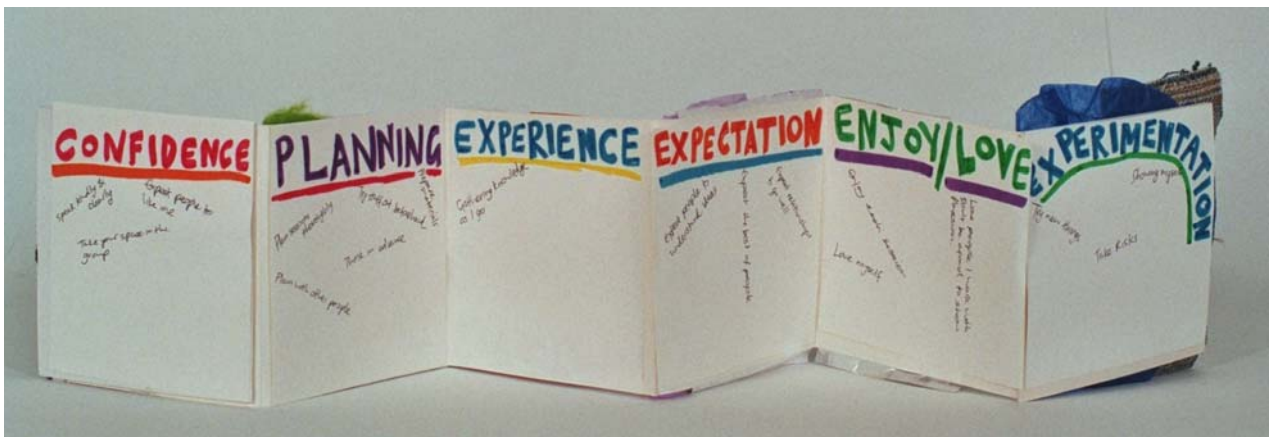 CONFIDENCE
Speak loudly &
clearly
Expect people to
like me
Take your space in the
group
PLANNING
Plan sessions
Try stuff out beforehand
Prepare materials
Think in advance
Plan with other people
EXPERIENCE
Gathering knowledge
as I go
EXPECTATION
Expect people to
understand ideas
Expect the best of people
Expect relationships
to go well
ENJOY/LOVE
Enjoy each session
Love myself
Love people I work with
Don't be afraid to show
pleasure.
EXPERIMENTATION
Try new things
Showing myself
Take Risks